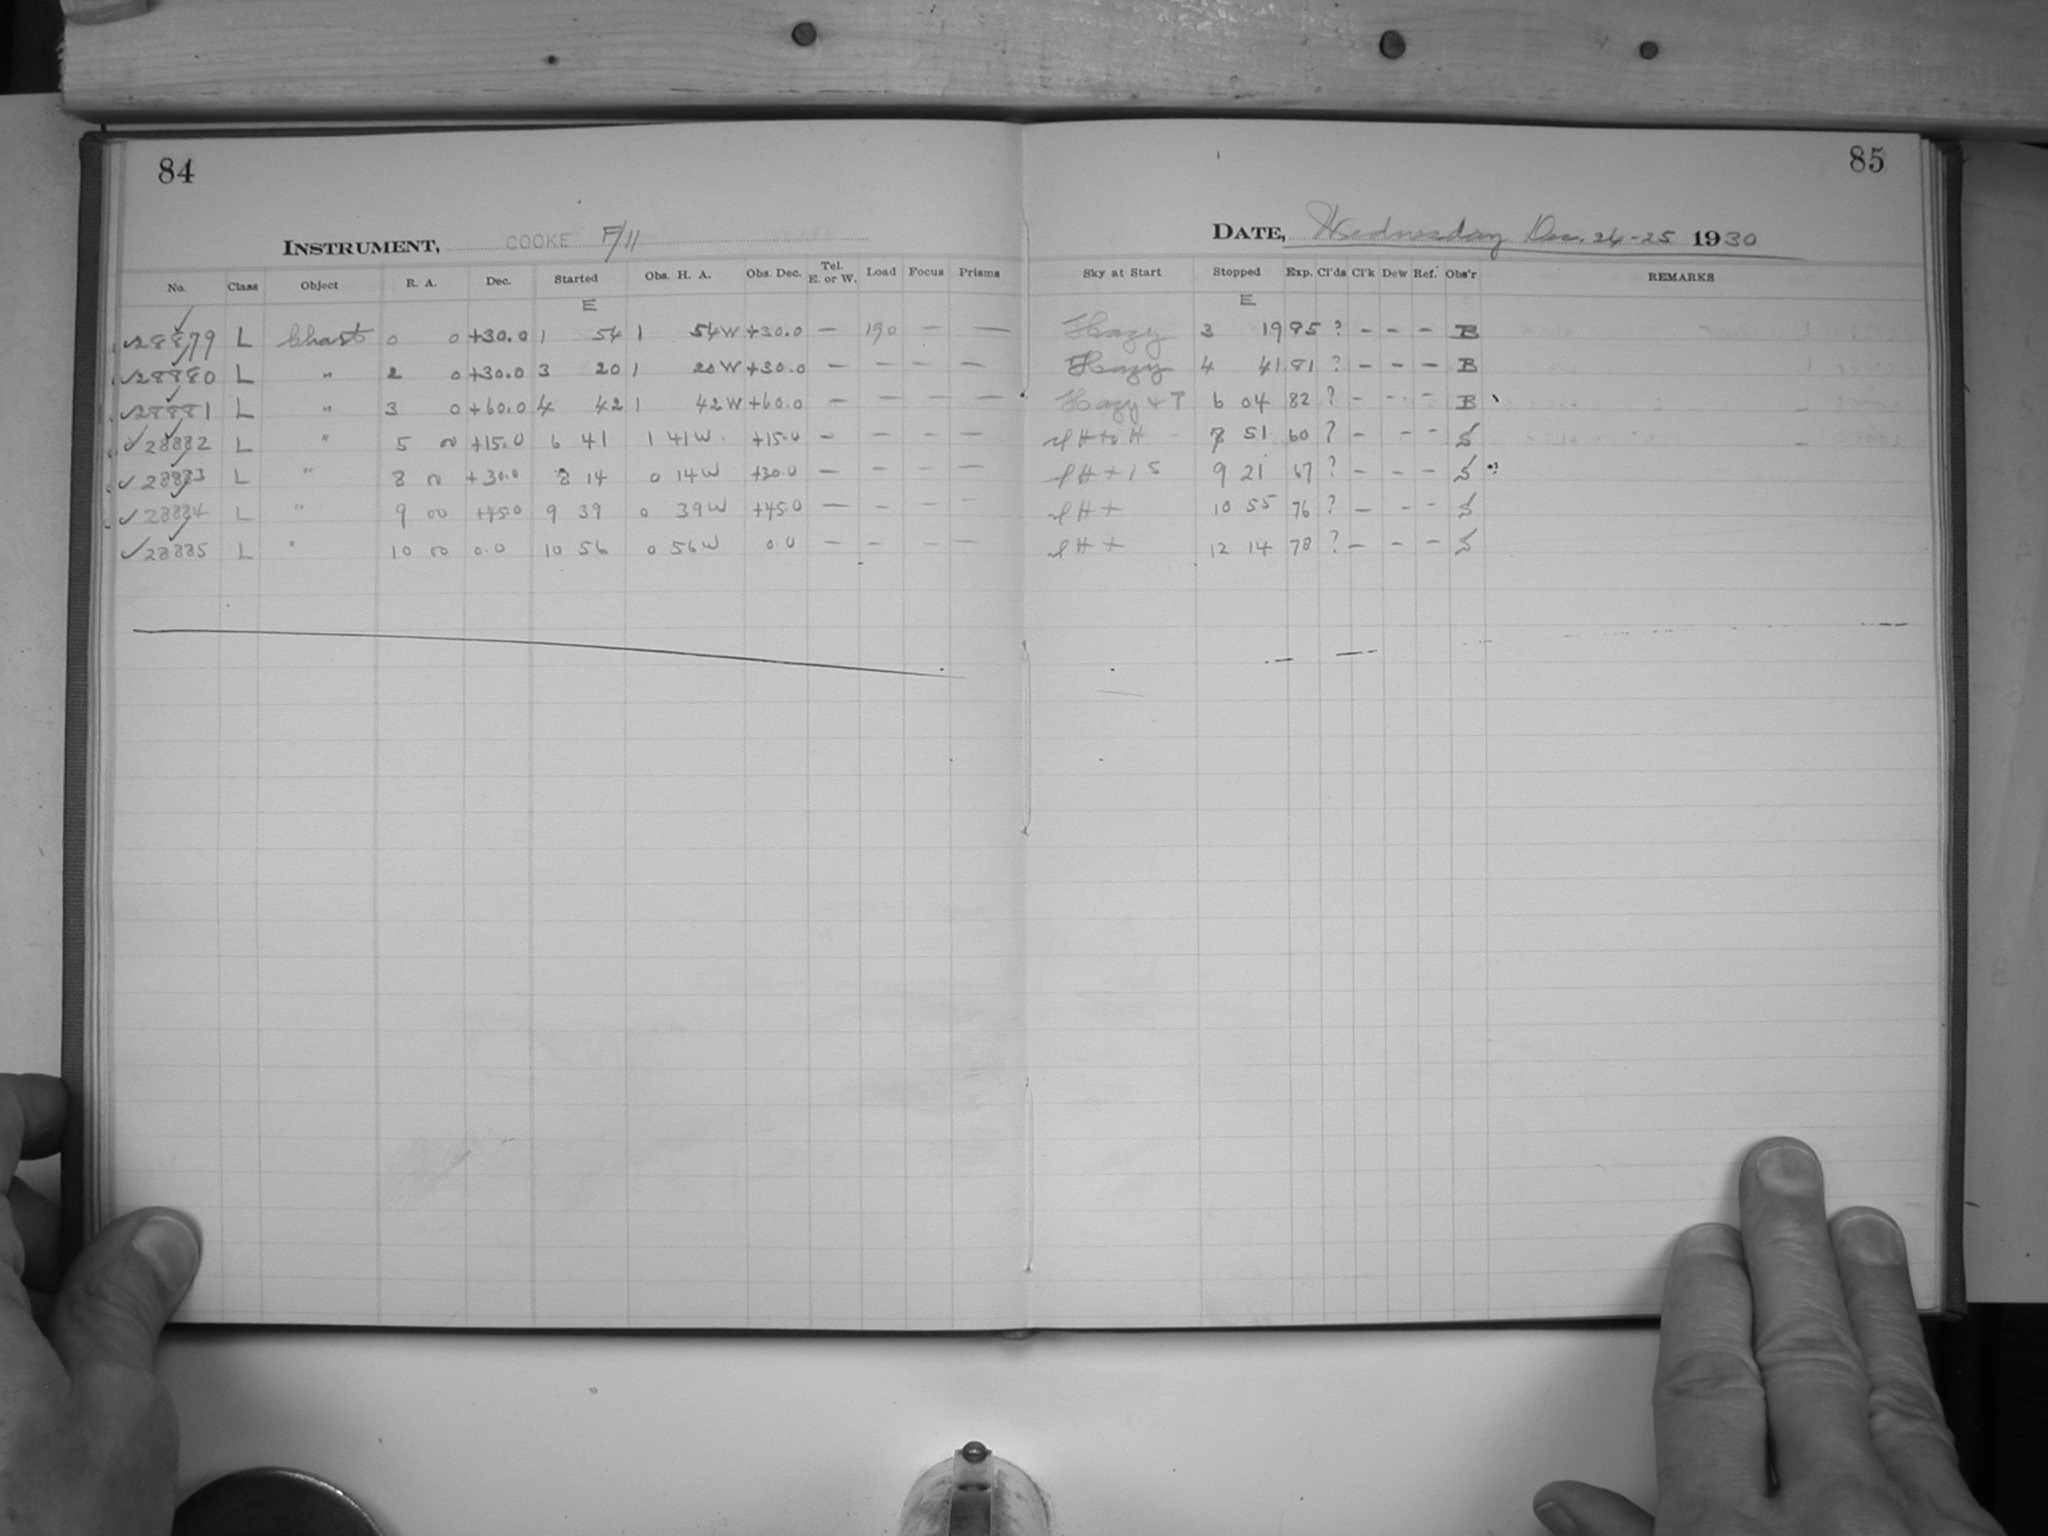 84
85
INSTRUMENT, COOKE F/11
DATE, Wednesday Dec. 24-25 1930
No. Class Object R. A. Dec. Started Obs. H. A. Obs. Dec. Tel. E. or W. Load Focus Prisms Sky at Start Stopped Exp. Cl'ds Cl'k Dew Ref. Obs'r REMARKS
E E
28879 L Chart 0 0 +30.0 1 54 1 54W +30.0 — 190 — — Hazy 3 19 85 ? – – – B
28880 L " 2 0 +30.0 3 20 1 20W +30.0 — — — — Hazy 4 41 81 ? – – – B
28881 L " 3 0 +60.0 4 42 1 42W +60.0 — — — — Hazy + T 6 04 82 ? – – – B
28882 L " 5 00 +15.0 6 41 1 41W +15.0 – – – — 7 51 60 ? – – – S
28883 L " 8 00 +30.0 8 14 0 14W +30.0 — – – — 9 21 67 ? – – – S
28884 L " 9 00 +45.0 9 39 0 39W +45.0 — – – – 10 55 76 ? – – – S
28885 L " 10 00 0.0 10 56 0 56W 0.0 – – – — 12 14 78 ? – – – S